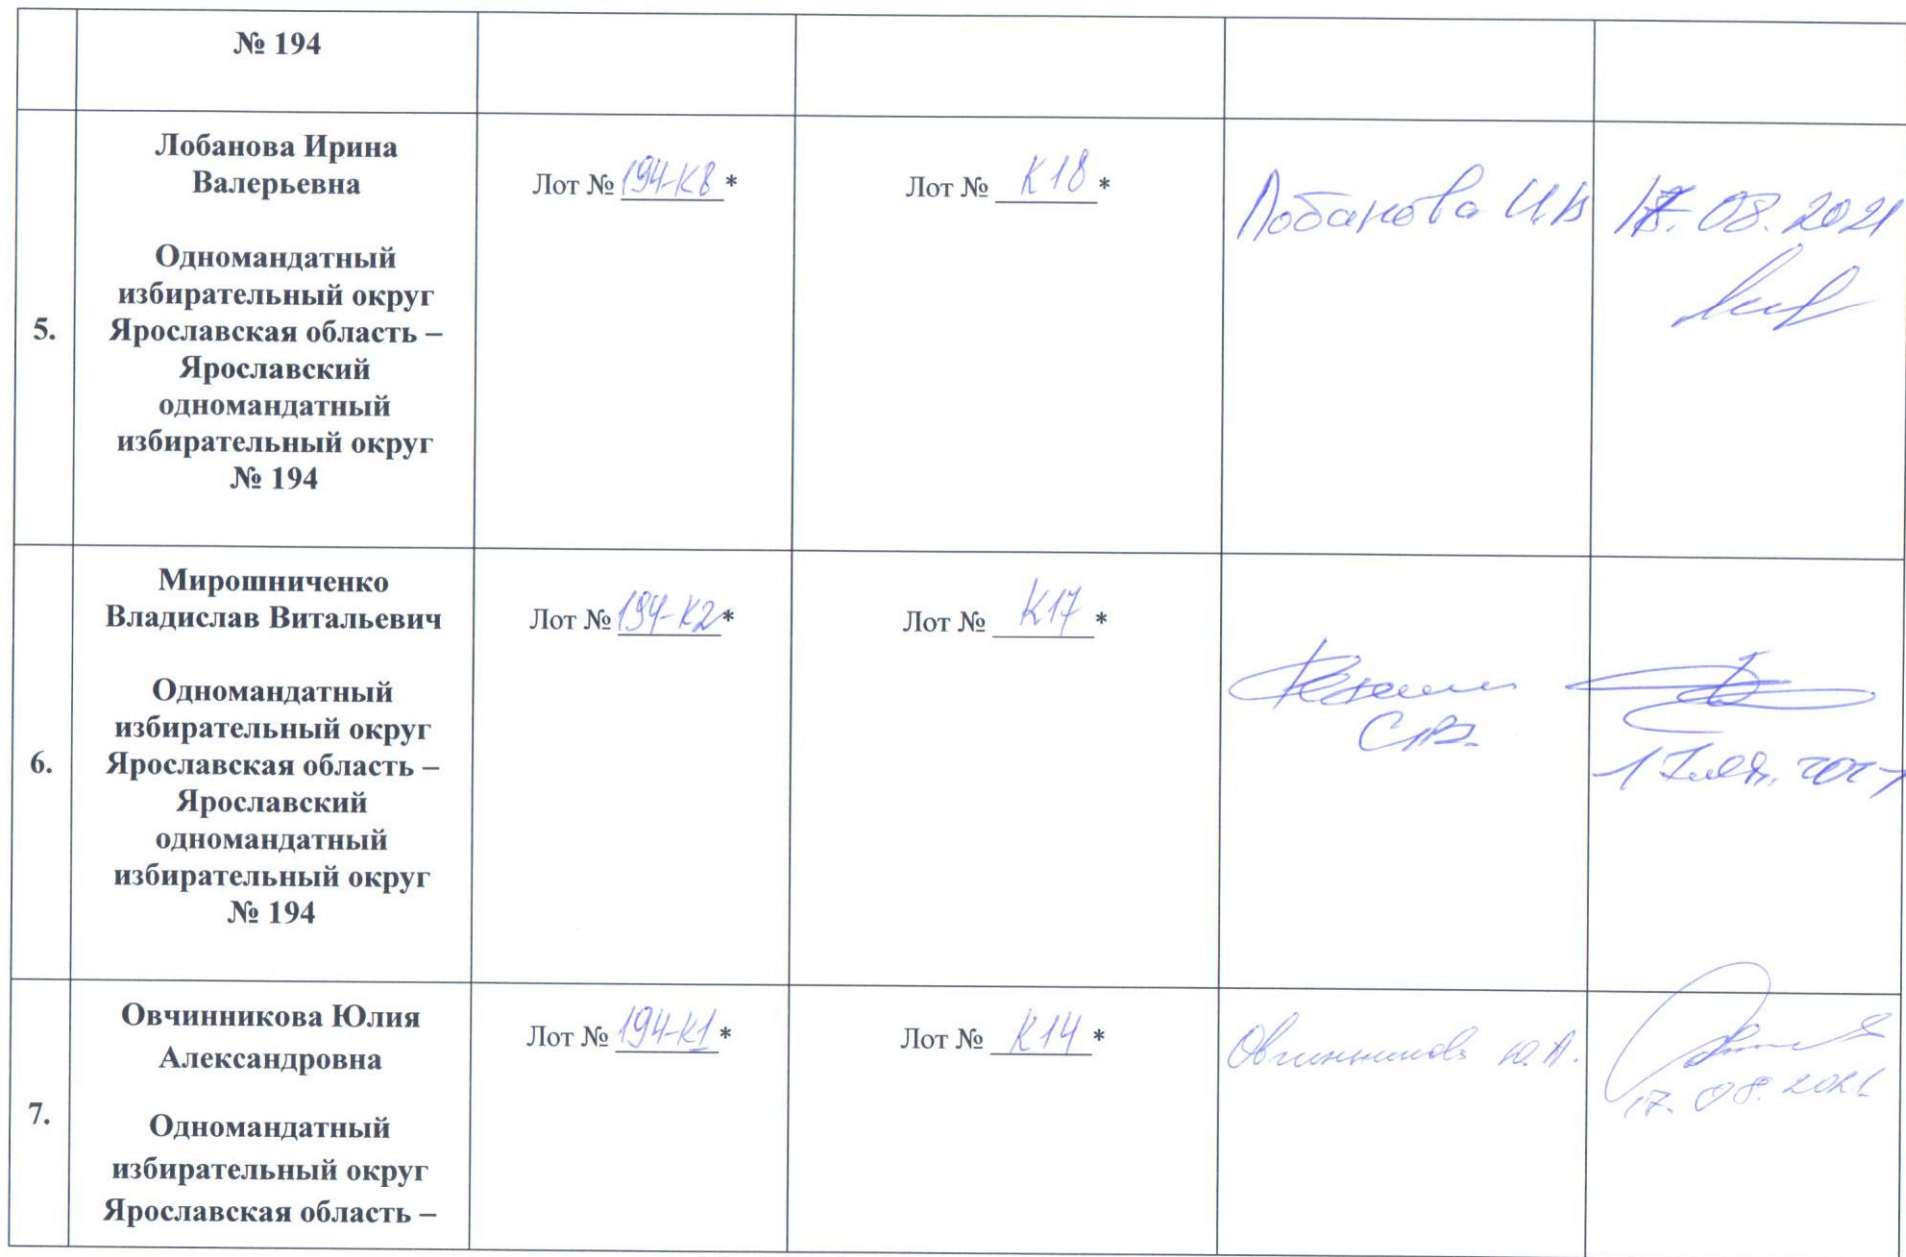 № 194
5.
Лобанова Ирина
Валерьевна
Одномандатный
избирательный округ
Ярославская область –
Ярославский
одномандатный
избирательный округ
№ 194
Лот № 194-К8*
Лот № К18*
Лобанова И.В
17.08.2021
6.
Мирошниченко
Владислав Витальевич
Одномандатный
избирательный округ
Ярославская область –
Ярославский
одномандатный
избирательный округ
№ 194
Лот № 194-К2*
Лот № К17*
7.
Овчинникова Юлия
Александровна
Одномандатный
избирательный округ
Ярославская область –
Лот № 194-К1*
Лот № К14*
Овчинникова Ю.А.
17.08.2021